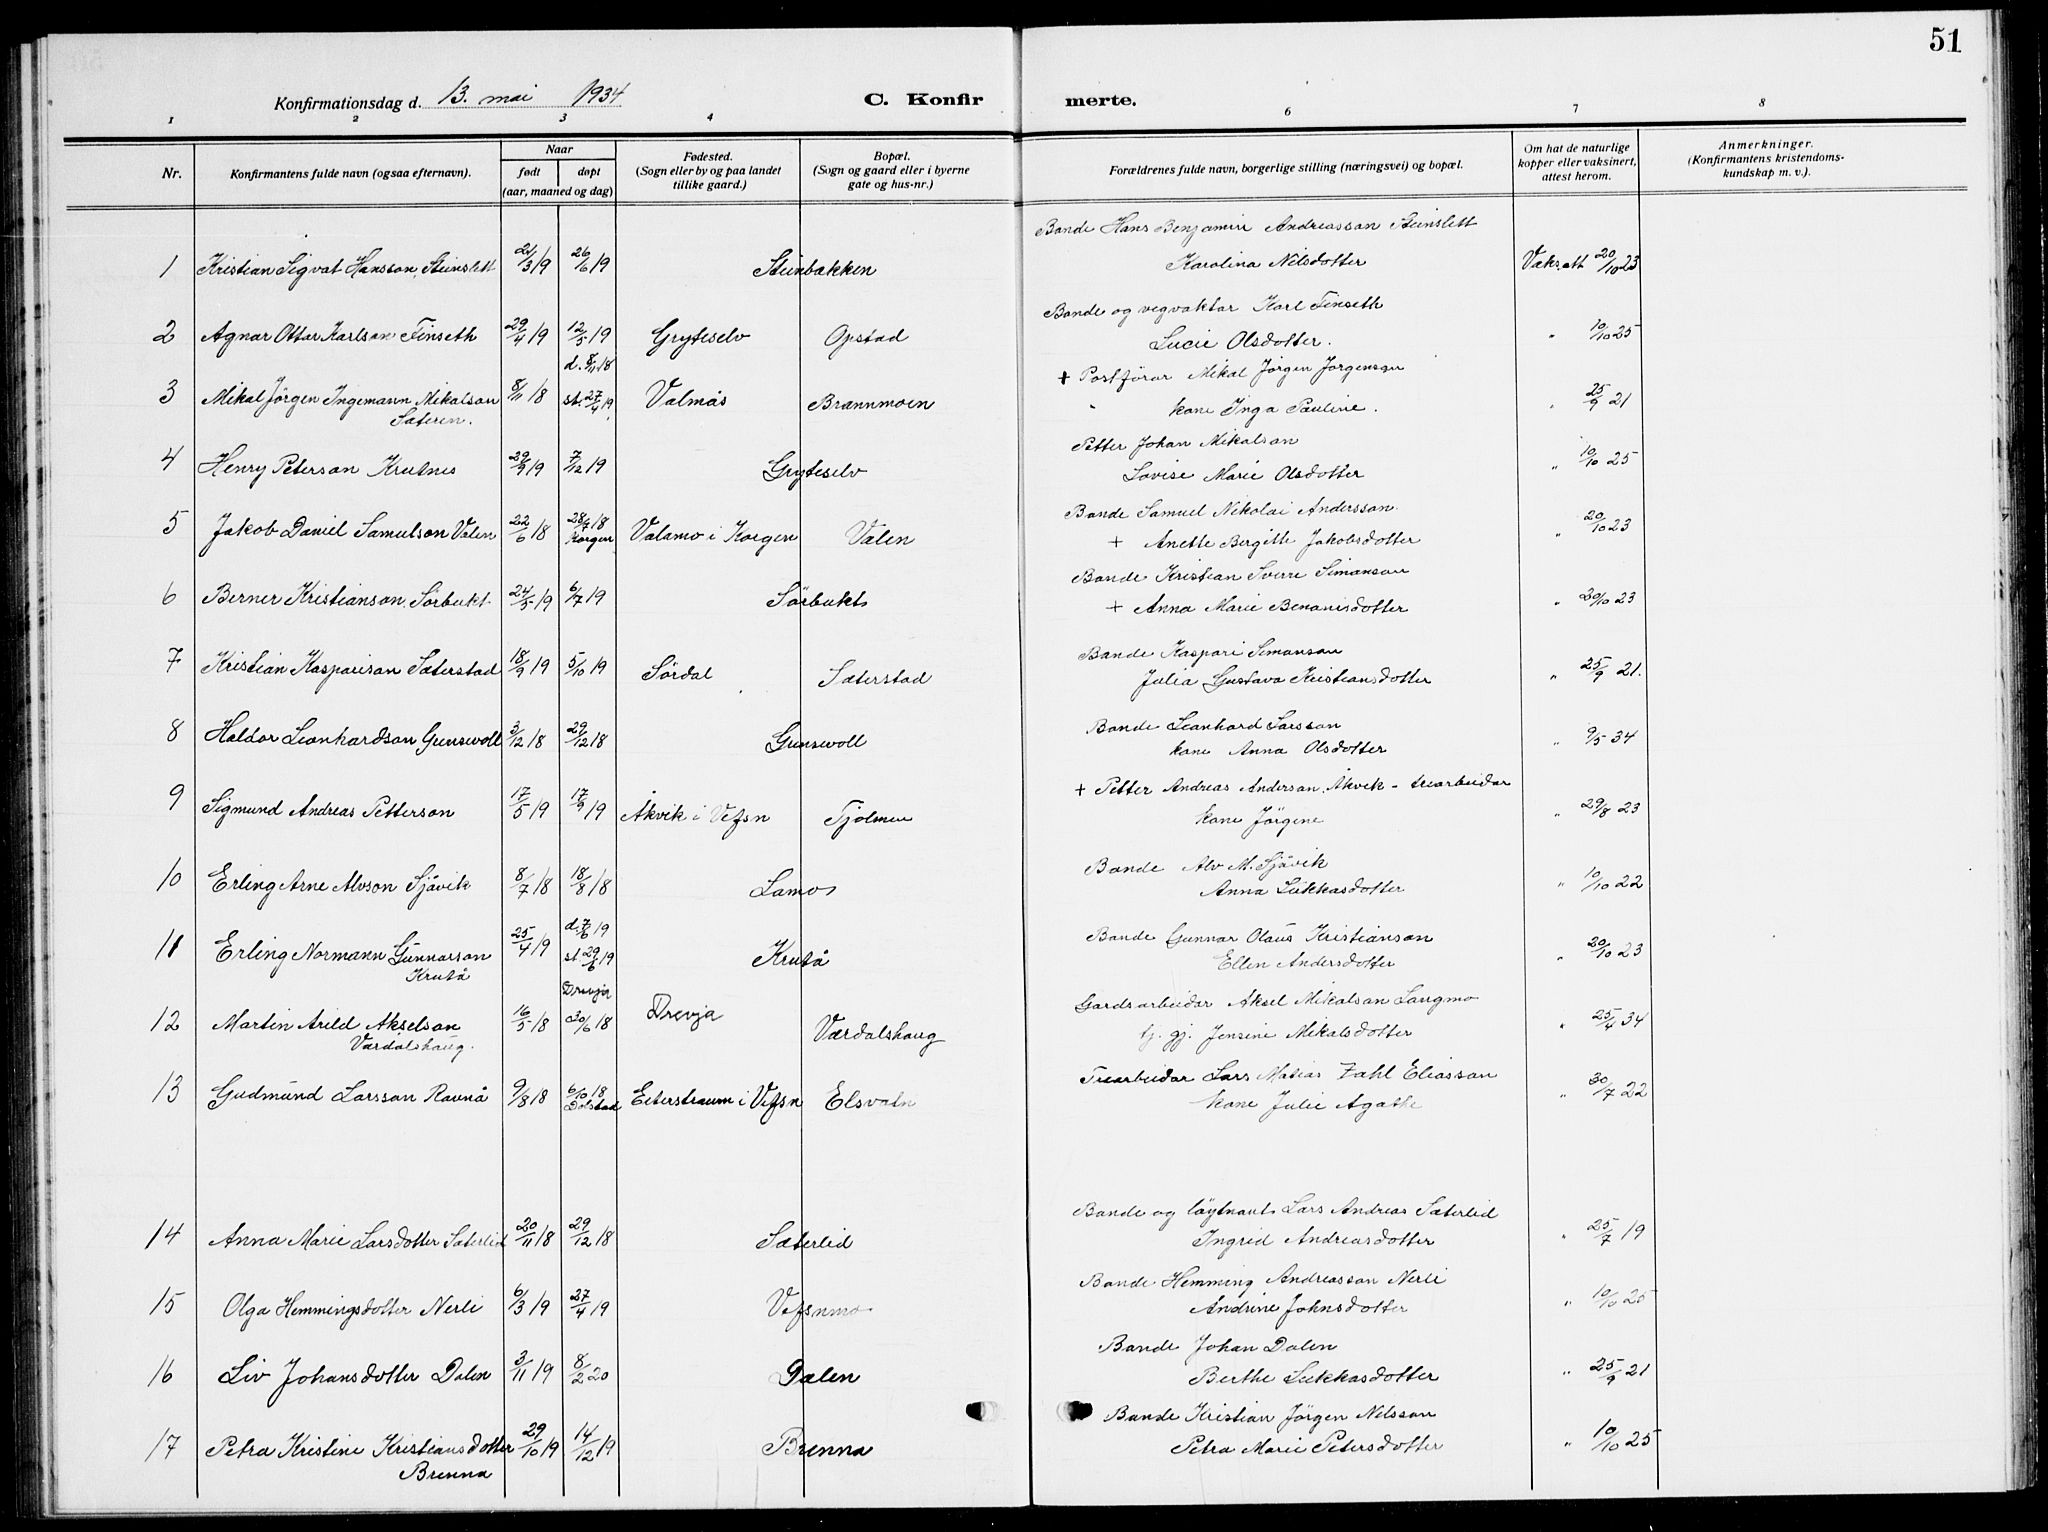 51
Konfirmationsdag d. 13. mai 1934 C. Konfirmerte.
1 2 3 4 6 7 8
Nr. Konfirmantens fulde navn (ogsaa efternavn). Naar født døpt (aar, maaned og dag) Fødested. (Sogn eller by og paa landet tillike gaard.) Bopæl. (Sogn og gaard eller i byerne gate og hus-nr.) Forældrenes fulde navn, borgerlige stilling (næringsvei) og bopæl. Om hat de naturlige kopper eller vaksinert, attest herom. Anmerkninger. (Konfirmantens kristendomskundskap m. v.).
Bonde Hans Benjamin Andreasson Steinslett
1 Kristian Sigvat Hansson Steinslett 21/3 19 26/6 19 Steinbakken Karolina Nilsdotter Vaks.att 20/10 23
Bonde og vegvaktar Karl Finseth
2 Agnar Ottar Karlson Finseth 29/4 19 12/5 19 Gryteselv Opstad Lucie Olsdotter. " 10/10 25
d. 8/11 18 + Postførar Mikal Jørgen Jørgenson
3 Mikal Jørgen Ingemann Mikalson 8/11 18 st. 27/4 19 Valmås Brannmoen " kone Inga Pauline. " 25/9 21
Sæteren.
Petter Johan Mikalson
4 Henry Peterson Krutnes 29/9 19 7/12 19 Gryteselv Lovise Marie Olsdotter " 10/10 25
Bonde Samuel Nikolai Andersson
5 Jakob Daniel Samuelson Valen 22/6 18 28/7 18 Korgen Valamo i Korgen Valen + Anette Bergitte Jakobsdotter " 20/10 23
Bonde Kristian Sverre Simonson
6 Berner Kristianson Sørbukt 24/5 19 6/7 19 Sørbukt + Anna Marie Benonisdotter " 20/10 23
Bonde Kaspari Simonson
7 Kristian Kasparison Sæterstad 18/9 19 5/10 19 Sørdal Sæterstad Julia Gustava Kristiansdotter " 25/9 21.
Bonde Leonhard Larsson
8 Haldor Leonhardson Grensvoll 3/12 18 29/12 18 Grensvoll kone Anna Olsdotter " 9/5 34
+ Petter Andreas Anderson Åkvik - trearbeidar
9 Sigmund Andreas Petterson 17/5 19 17/9 19 Åkvik i Vefsn Tjolmen kone Jørgine " 29/8 23
Bonde Alv M. Sjåvik
10 Erling Arne Alvson Sjåvik 8/7 18 18/8 18 Lamo Anna Lukkasdotter " 10/10 22
d. 7/6 19 Bonde Gunnar Olaus Kristianson
11 Erling Normann Gunnarson 25/4 19 st. 29/6 19 Krutå Ellen Andersdotter " 20/10 23
Krutå
Drevja Gardsarbeidar Aksel Mikalson Langmo
12 Martin Arild Akselson 16/5 18 30/6 18 Drevja Værdalshaug tj. gj. Jensine Mikalsdotter " 25/4 34
Værdalshaug.
Trearbeidar Lars Matias Zahl Eliasson
13 Gudmund Larsson Ravnå 9/8 18 6/10 18 Dolstad Eiterstraum i Vefsn Elsvatn kone Julie Agathe " 30/7 22
Bonde og løytnant Lars Andreas Sæterlid
14 Anna Marie Larsdotter Sæterlid 20/11 18 29/12 18 Sæterlid Ingrid Andreasdotter " 25/7 19
Bonde Hemming Andreasson Nerli
15 Olga Hemmingsdotter Nerli 6/3 19 27/4 19 Vefsnmo Andrine Johnsdotter " 10/10 25
Bonde Johan Dalen
16 Liv Johansdotter Dalen 3/11 19 8/2 20 Dalen Berthe Lukkasdotter " 25/9 21
Bonde Kristian Jørgen Nilsson
17 Petra Kristine Kristiansdotter 29/10 19 14/12 19 Brenna Petra Marie Petersdotter " 10/10 25
Brenna